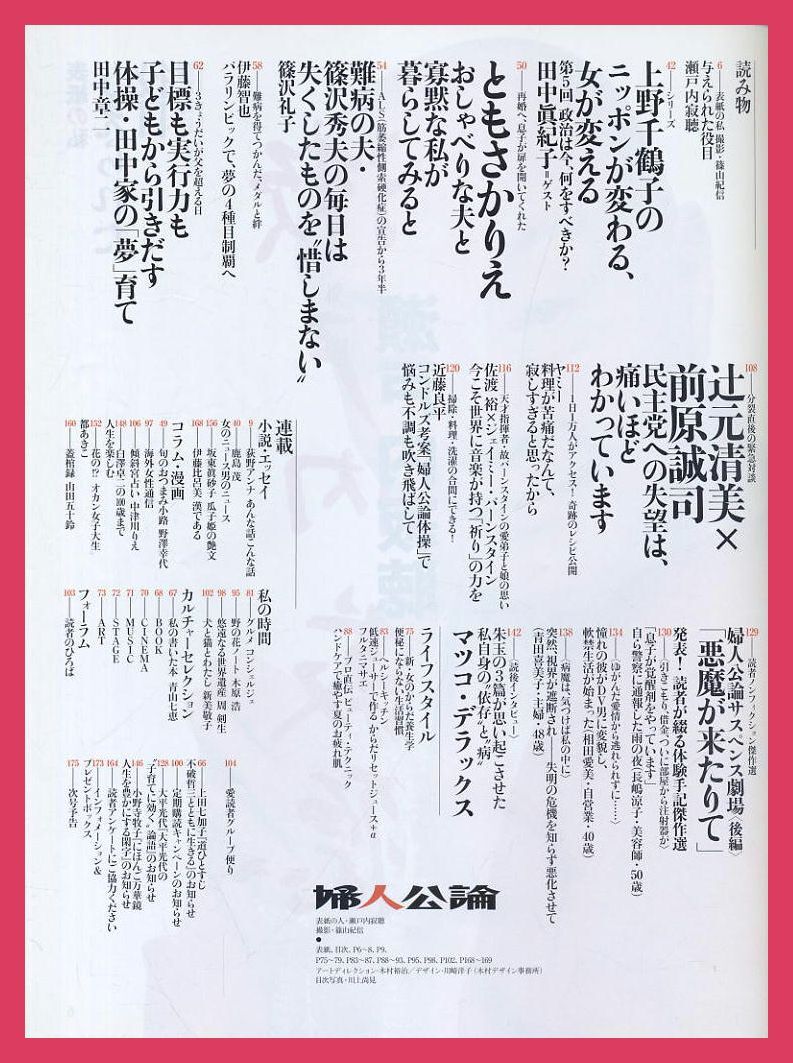 読み物
6 表紙の私 撮影・篠山紀信
与えられた役目
瀬戸内寂聴
42 シリーズ
上野千鶴子の
ニッポンが変わる、
女が変える
第5回 政治は今、何をすべきか?
田中眞紀子=ゲスト
50 再婚へ、息子が扉を開いてくれた
ともさかりえ
おしゃべりな夫と
寡黙な私が
暮らしてみると
54 ALS(筋萎縮性側索硬化症)の宣告から3年半
難病の夫・
篠沢秀夫の毎日は
失くしたものを〝惜しまない〟
篠沢礼子
58 難病を得てつかんだ、メダルと絆
伊藤智也
パラリンピックで、夢の4種目制覇へ
62 3きょうだいが父を超える日
目標も実行力も
子どもから引きだす
体操・田中家の「夢」育て
田中章二
108 分裂直後の緊急対談
辻元清美×
前原誠司
民主党への失望は、
痛いほど
わかっています
112 1日1万人がアクセス!奇跡のレシピ公開
ヤミー
料理が苦痛だなんて、
寂しすぎると思ったから
116 天才指揮者・故バーンスタインの愛弟子と娘の思い
佐渡 裕×ジェイミー・バーンスタイン
今こそ世界に音楽が持つ「祈り」の力を
120 掃除・料理・洗濯の合間にできる!
近藤良平
コンドルズ考案「婦人公論体操」で
悩みも不調も吹き飛ばして
連載
小説・エッセイ
9 荻野アンナ あんな話こんな話
40 鹿島 茂
女のニュース男のニュース
156 坂東眞砂子 瓜子姫の艶文
168 伊藤比呂美 漢である
コラム・漫画
49 旬のおつまみ小路 野澤幸代
97 海外女性通信
106 傾斜宮占い 中津川りえ
148 白澤卓二の100歳まで
人生を楽しむ
152 花の!? オカン女子大生
都あきこ
160 蓋棺録 山田五十鈴
129 読者ノンフィクション傑作選
婦人公論サスペンス劇場〈後編〉
「悪魔が来たりて」
発表! 読者が綴る体験手記傑作選
130 〈引きこもり、借金、ついに部屋から注射器が〉
「息子が覚醒剤をやっています」
自ら警察に通報した雨の夜(長嶋涼子・美容師・50歳)
134 〈ゆがんだ愛情から逃れられずに……〉
憧れの彼がDV男に変貌し、
軟禁生活が始まった(相田愛美・自営業・40歳)
138 〈病魔は、気づけば私の中に〉
突然、視界が遮断され――失明の危機を知らず悪化させて
(青田喜美子・主婦・48歳)
142 〈読後インタビュー〉
朱玉の3篇が思い起こさせた
私自身の〝依存〟と〝病〟
マツコ・デラックス
ライフスタイル
75 新・女のからだ養生学
便秘にならない生活習慣
83 ヘルシーキッチン
低速ジューサーで作る からだリセットジュース+α
フルタニマサエ
88 プロ直伝 ビューティ・テクニック
ハンドケアで癒やす夏のお疲れ肌
私の時間
81 グルメ コンシェルジュ
95 野の花ノート 木原 浩
98 悠遠なる世界遺産 周 剣生
102 犬と猫とわたし 新美敬子
カルチャーセレクション
67 私の書いた本 青山七恵
68 BOOK
70 CINEMA
71 MUSIC
72 STAGE
73 ART
フォーラム
103 読者のひろば
104 愛読者グループ便り
66 上田七加子『道ひとすじ
不破哲三とともに生きる』のお知らせ
100 定期購読キャンペーンのお知らせ
128 大平光代『大平光代の
〝子育てに効く〟論語』のお知らせ
146 小野寺牧子『にほんご万華鏡
人生を豊かにする閑字』のお知らせ
164 読者アンケートにご協力ください
173 インフォメーション&
プレゼントボックス
175 次号予告
婦人公論
表紙の人・瀬戸内寂聴
撮影・篠山紀信
●
表紙、目次、P6~8、P9、
P75~79、P83~87、P88~93、P95、P98、P102、P168~169
アートディレクション・木村裕治/デザイン・川崎洋子(木村デザイン事務所)
目次写真・川上尚見